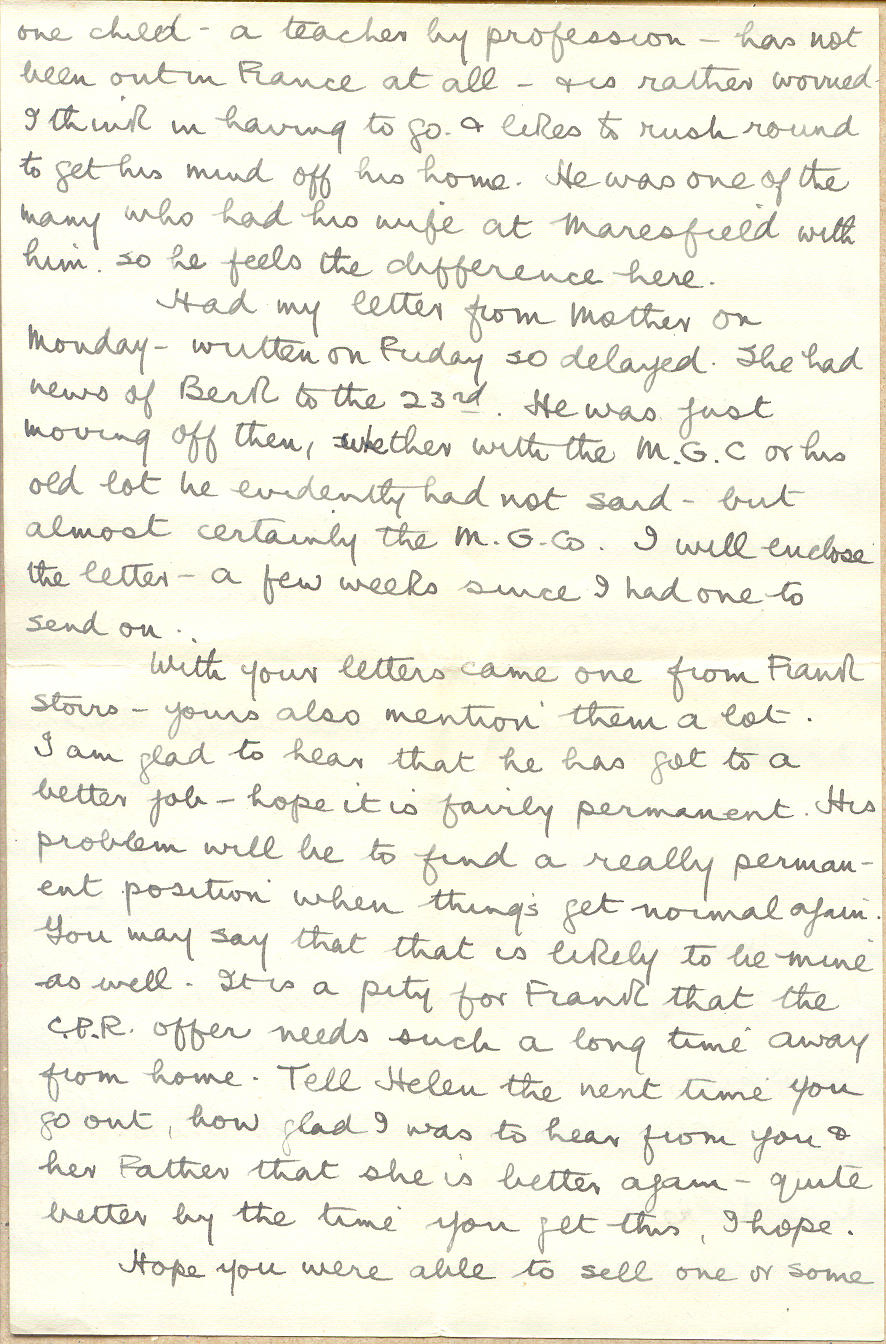 one child - a teacher by profession - has not
been out in France at all - & is rather worried
I think in having to go. & likes to rush round
to get his mind off his home. He was one of the
many who had his wife at Maresfield with
him. so he feels the difference here.
Had my letter from Mother on
Monday - written on Friday so delayed. She had
news of Bert to the 23rd. He was just
moving off then, whether with the M.G.C or his
old lot he evidently had not said - but
almost certainly the M.G.Co. I will enclose
the letter - a few weeks since I had one to
send on..
With your letters came one from Frank
- yours also mention them a lot.
I am glad to hear that he has got to a
better job - hope it is fairly permanent. His
problem will be to find a really perman-
ent position when things get normal again.
You may say that that is likely to be mine
as well. It is a pity for Frank that the
C.P.R. offer needs such a long time away
from home. Tell Helen the next time you
go out, how glad I was to hear from you &
her Father that she is better again - quite
better by the time you get this, I hope.
Hope you were able to sell one or some